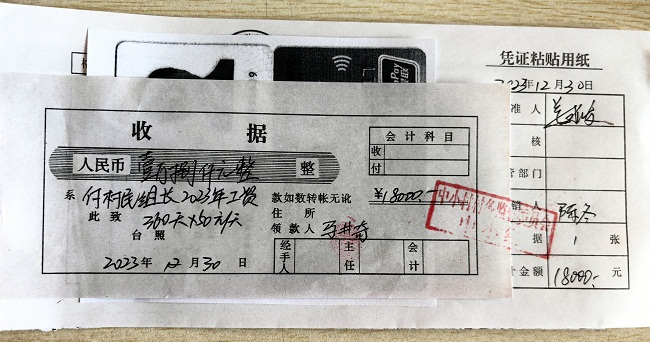 凭证粘贴用纸
2023年12月30日
准人
核
管部门
销人 陈冬
据 1 张
计金额 18000.- 元
收据
会计科目
收
付
人民币 壹万捌仟元整 整
¥18000.-
系 付村民组长2023年工资
360天×50元/天
此致
台照
款如数转帐无讹
住所
领款人
经手人
主任
会计
2023年12月30日